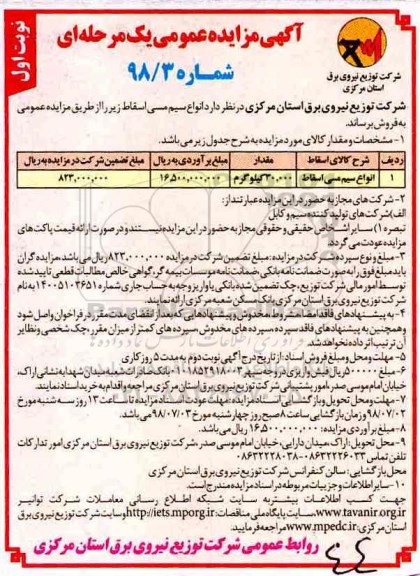 نوبت اول
آگهی مزایده عمومی یک مرحله‌ای
شماره ۹۸/۳
شرکت توزیع نیروی برق
استان مرکزی
شرکت توزیع نیروی برق استان مرکزی در نظر دارد انواع سیم مسی اسقاط زیر را از طریق مزایده عمومی
به فروش برساند.
۱- مشخصات و مقدار کالای مورد مزایده به شرح جدول زیر می‌باشد.
ردیف شرح کالای اسقاط مقدار مبلغ برآوردی به ریال مبلغ تضمین شرکت در مزایده به ریال
۱ انواع سیم مسی اسقاط ۳۰.۰۰۰ کیلوگرم ۱۶,۵۰۰,۰۰۰,۰۰۰ ۸۲۳,۰۰۰,۰۰۰
۲- شرکت های مجاز به حضور در این مزایده عبارتند از:
الف) شرکت های تولید کننده سیم و کابل
تبصره ۱) سایر اشخاص حقیقی و حقوقی مجاز به حضور در این مزایده نیستند و در صورت ارائه قیمت پاکت های
مزایده عودت می گردد.
۳- مبلغ و نوع سپرده شرکت در مزایده: مبلغ تضمین شرکت در مزایده ۸۲۳,۰۰۰,۰۰۰ ریال می باشد. مزایده گران
باید مبلغ فوق را به صورت ضمانت نامه بانکی، ضمانت نامه موسسات بیمه گر، گواهی خالص مطالبات قطعی تایید شده
توسط امور مالی شرکت توزیع، چک تضمین شده بانکی یا واریز وجه به حساب جاری شماره ۱۴۰۰۵۱۰۳۶۵۱ به نام
شرکت توزیع نیروی برق استان مرکزی بانک مسکن شعبه مرکزی ارائه نمایند.
۴- به پیشنهادهای فاقد امضا، مشروط، مخدوش و پیشنهادهایی که بعد از انقضای مدت مقرر در فراخوان واصل شود
و همچنین به پیشنهادهای فاقد سپرده، سپرده های مخدوش، سپرده های کمتر از میزان مقرر، چک شخصی و نظایر
آن ترتیب اثر داده نخواهد شد.
۵- مهلت و محل و مبلغ فروش اسناد: از تاریخ درج آگهی نوبت دوم به مدت ۵ روز کاری
۷- مهلت تحویل و بازگشایی اسناد مزایده: مهلت عودت اسناد مزایده تا ساعت ۱۳ روز سه شنبه مورخ
۹۸/۰۷/۰۲ و زمان بازگشایی ساعت ۸ صبح روز چهارشنبه مورخ ۹۸/۰۷/۰۳ می باشد.
۸- مبلغ برآوردی مزایده: ۱۶,۵۰۰,۰۰۰,۰۰۰ ریال می باشد.
۹- محل تحویل: اراک میدان دارایی، خیابان امام موسی صدر، شرکت توزیع نیروی برق استان مرکزی امور تدارکات
تلفن تماس ۰۸۶۳۲۲۲۶۰۳۳-۰۸۶۳۲۲۲۸۰۳۸
محل بازگشایی: سالن کنفرانس شرکت توزیع نیروی برق استان مرکزی
۱۰- سایر اطلاعات و جزییات مربوطه در اسناد مزایده مندرج است.
جهت کسب اطلاعات بیشتر به سایت شبکه اطلاع رسانی معاملات شرکت توانیر
www.tavanir.org.ir، سایت پایگاه ملی مناقصات: http://iets.mporg.ir و سایت شرکت توزیع نیروی برق
استان مرکزی: www.mpedc.ir مراجعه فرمایید.
روابط عمومی شرکت توزیع نیروی برق استان مرکزی